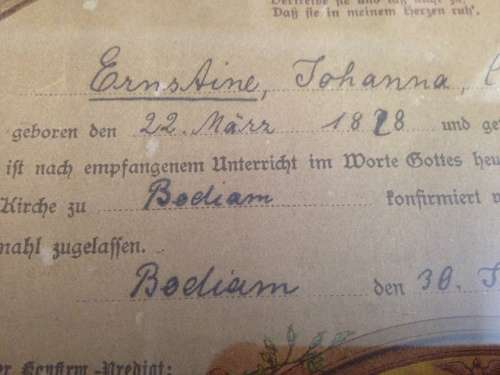 Vertreibe sie und laß
Daß sie in meinem Herzen ruh'.
Ernstine, Johanna,
geboren den 22. März 1878 und
ist nach empfangenem Unterricht im Worte Gottes
Kirche zu Bodiam konfirmiert
mahl zugelassen.
Bodiam den 30.
Konfirm.-Predigt: